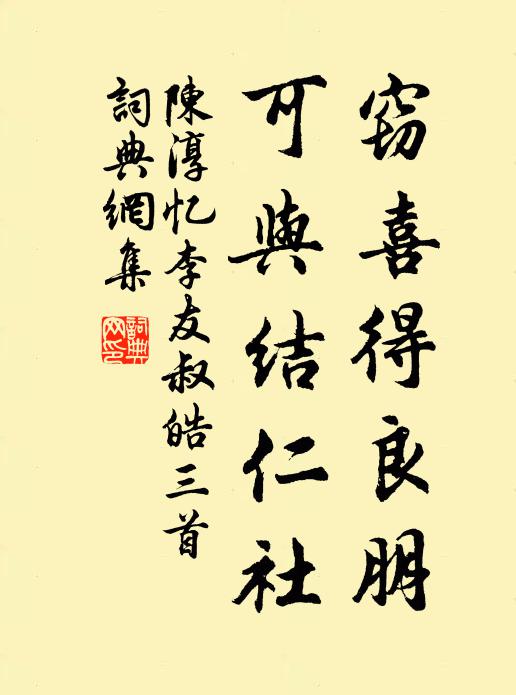 窃喜得良朋
可與结仁社
陳淳忆李友叔皓三首
詞典網集
詞典网印